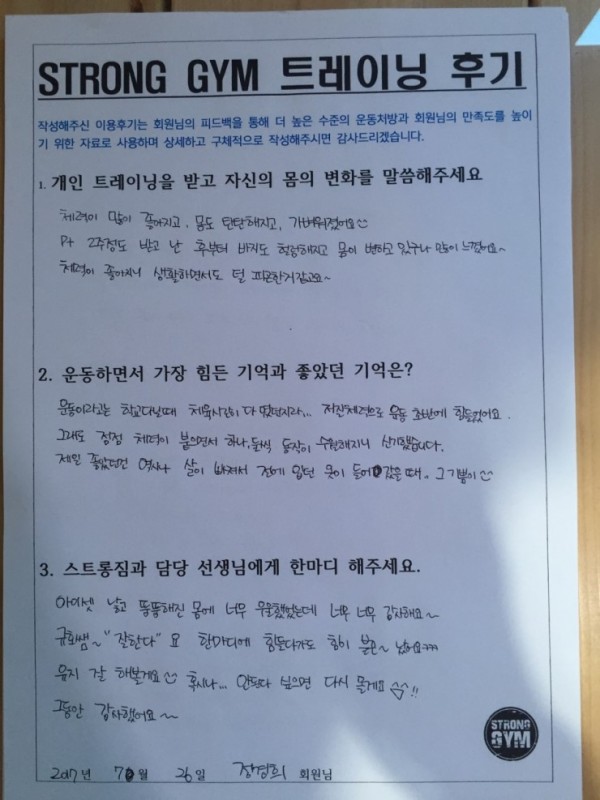 STRONG GYM 트레이닝 후기
작성해주신 이용후기는 회원님의 피드백을 통해 더 높은 수준의 운동처방과 회원님의 만족도를 높이
기 위한 자료로 사용하며 상세하고 구체적으로 작성해주시면 감사드리겠습니다.
1. 개인 트레이닝을 받고 자신의 몸의 변화를 말씀해주세요
체력이 많이 좋아지고, 몸도 탄탄해지고, 가벼워졌어요
Pt 2주정도 받고 난 후부터 바지도 헐렁해지고 몸이 변하고 있구나 많이 느꼈어요~
체력이 좋아지니 생활하면서도 덜 피곤한거같고요~
2. 운동하면서 가장 힘든 기억과 좋았던 기억은?
운동이라고는 학교다닐때 체육시간이 다 였던지라... 저질체력으로 운동 초반에 힘들었어요.
그래도 점점 체력이 붙으면서 하나, 둘씩 동작이 수월해지니 신기했습니다.
제일 좋았던건 역시나 살이 빠져서 전에 입던 옷이 들어갔을때.. 그 기쁨이
3. 스트롱짐과 담당 선생님에게 한마디 해주세요.
아이셋 낳고 뚱뚱해진 몸에 너무 우울했었는데 너무 너무 감사해요~
규희쌤~ "잘한다" 요 한마디에 힘들다가도 힘이 불끈~ 났어요ㅋㅋㅋ
유지 잘 해볼게요 혹시나... 안되다 싶으면 다시 올게요 ^^!!
그동안 감사했어요~
2017년 7월 26일 장경희 회원님
STRONG
GYM